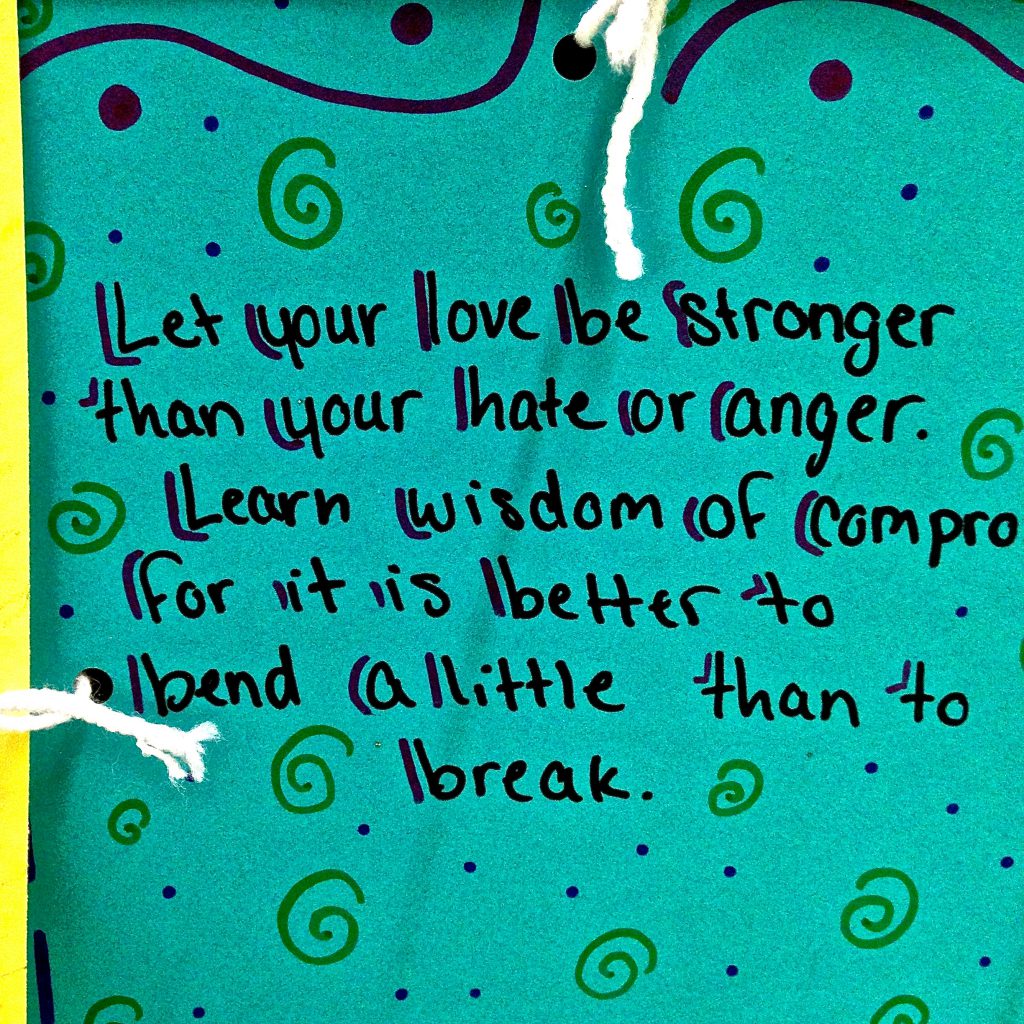 Let your love be stronger
than your hate or anger.
Learn wisdom of compro
for it is better to
bend a little than to
break.